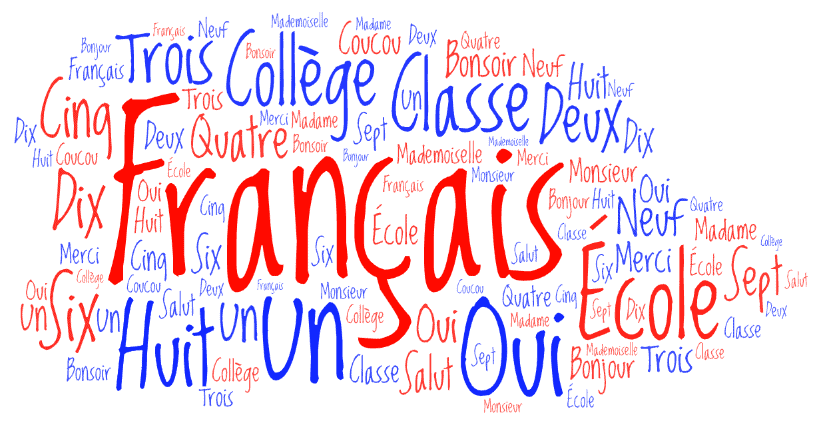 Français Neuf Mademoiselle Madame
Bonjour Trois Bonsoir Collège Coucou Deux Quatre
Français Bonsoir Neuf
Cinq Trois un Classe Huit Neuf
Dix Deux Quatre Merci Madame Sept Deux Dix
Huit Coucou Bonsoir Bonjour Mademoiselle Mademoiselle Merci
École Français Monsieur Monsieur
Dix Oui Français Bonjour Huit Oui
Huit Cinq École Classe Neuf Quatre
Merci Cinq Six Six Salut Madame Collège
Collège Coucou Deux Français Monsieur Coucou Six Merci École Sept Salut
Oui un Six un Salut un Un Collège Quatre Cinq Sept Dix École Deux
Huit Oui Madame Classe
Bonsoir Collège Classe Salut Sept Oui Bonjour Mademoiselle Trois Classe
Trois Monsieur École